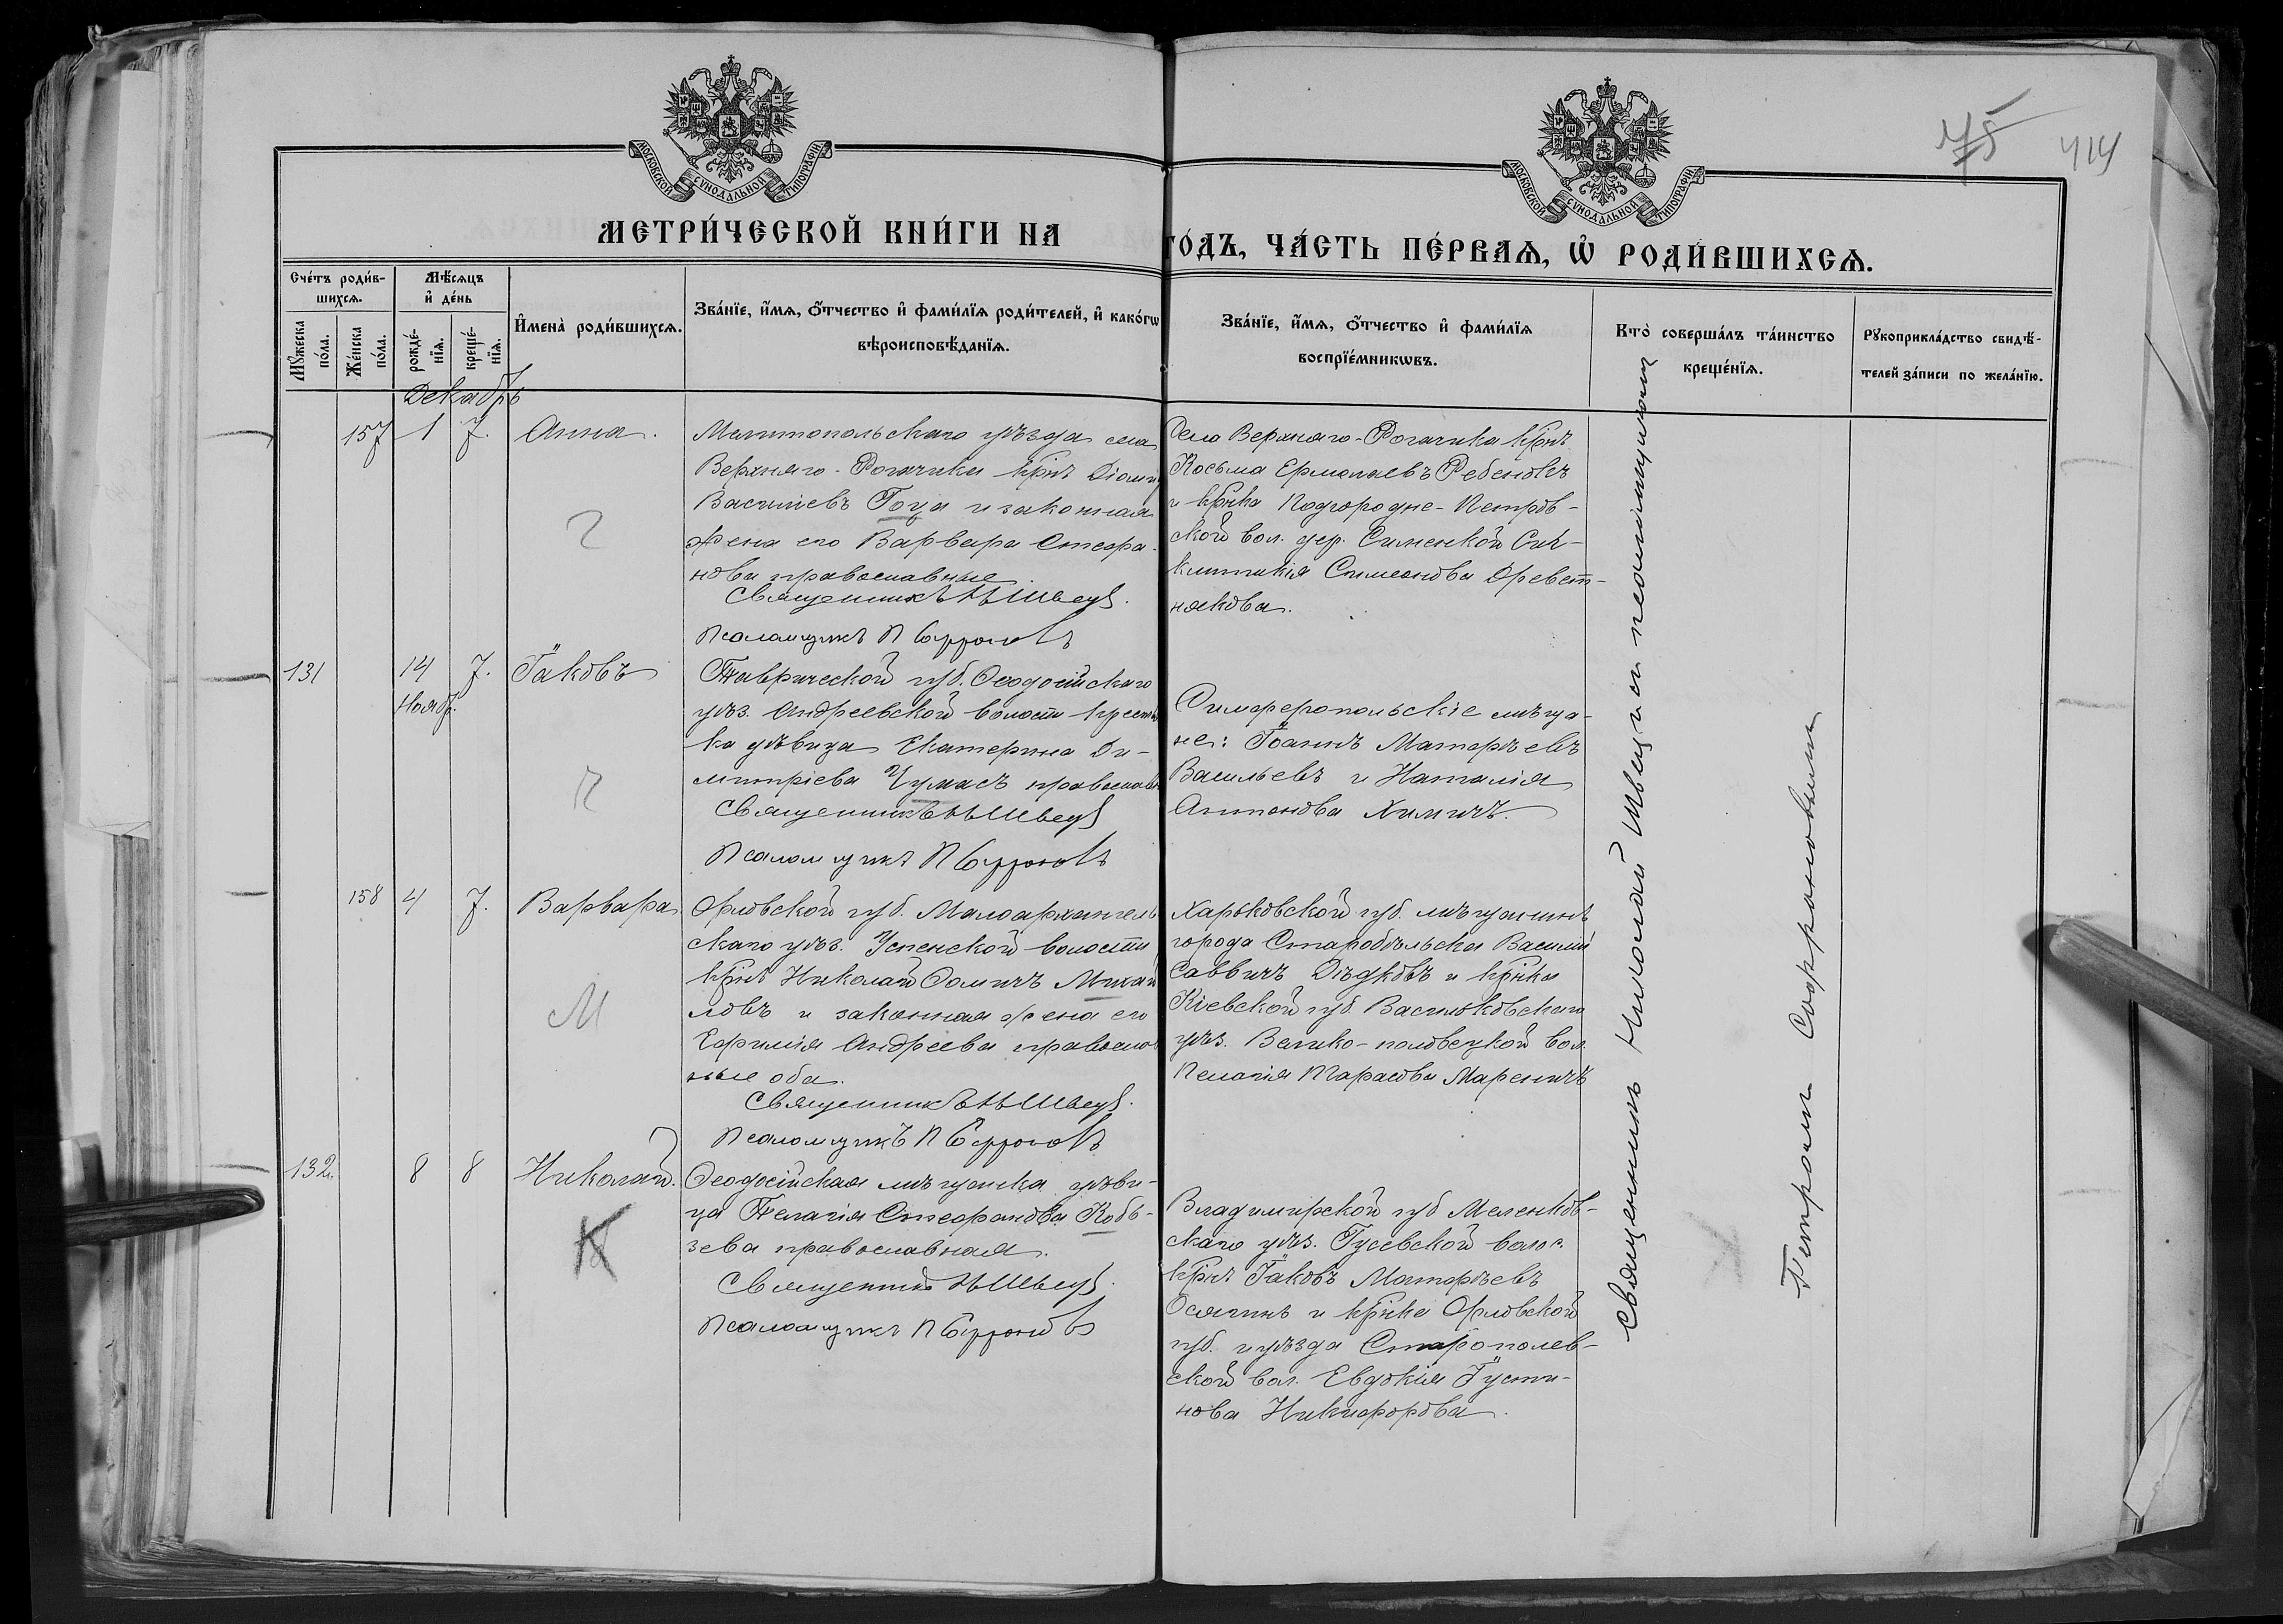 МОСКОВСКОЙ СѴНОДАЛЬНОЙ ТИПОГРАФІИ
МОСКОВСКОЙ СѴНОДАЛЬНОЙ ТИПОГРАФІИ
75
414
МЕТРИ́ЧЕСКОЙ КНИ́ГИ НА
ГО́ДЪ, ЧА́СТЬ ПЕ́РВАѦ, Ѽ РОДИ́ВШИХСѦ.
Сче́тъ роди́в-
шихсѧ.
Мꙋ́жеска
по́ла.
Же́нска
по́ла.
Мѣ́сѧцъ
и҆ де́нь
рожде́-
нїѧ.
креще́-
нїѧ.
И҆мена̀ роди́вшихсѧ.
Зва́нїе, и҆́мѧ, ѻ҆́тчество и҆ фами́лїѧ роди́телей, и҆ како́гѡ
вѣроисповѣ́данїѧ.
Зва́нїе, и҆́мѧ, ѻ҆́тчество и҆ фами́лїѧ
воспрїе́мникѡвъ.
Кто̀ соверша́лъ та́инство
креще́нїѧ.
Рꙋкоприкла́дство свидѣ́-
телей за́писи по жела́нїю.
Декабрь
157 1 7. Анна.
Мелитопольскаго уѣзда села
Верхняго-Рогачика крнъ Діоми
Василіевъ Гоца и законная
жена его Варвара Стефа-
нова православные.
Священникъ Н Швец
Псаломщикъ П Софроновъ
Г
Села Верхняго-Рогачика крнъ
Косьма Ермолаевъ Ребенокъ
и крнка Подгородне-Петров-
ской вол. дер.
Симеонова Древет-
някова.
131 14 7. Іаковъ
Ноябр.
Таврической губ. Ѳеодосійскаго
уѣз. Андреевской волости крестьян
ка дѣвица Екатерина Ди-
митріева Чумасъ православ
Священникъ Н Швец
Псаломщикъ П Софроновъ
Ч
Симферопольскіе мѣща-
не: Іоаннъ Матѳѣевъ
Васильевъ и Наталія
Антонова Химичъ.
158 4 7. Варвара
Орловской губ. Малоархангель
скаго уѣз. Успенской волости
крнъ Николай Ѳомичъ Михай
ловъ и законная жена его
Евфимія Андреева православ
ные оба.
Священникъ Н Швец.
Псаломщикъ П Софроновъ
М
Харьковской губ. мѣщанинъ
города Старобѣльска Василій
Саввичъ Дѣдковъ и крнка
Кіевской губ. Васильковскаго
уѣз. Велико-половецкой вол.
Пелагія Тарасова Мареничъ
132. 8 8 Николай.
Ѳеодосійская мѣщанка дѣви-
ца Пелагія Стефанова Кобы-
зева православная.
Священникъ Н Швец.
Псаломщикъ П Софроновъ
К
Владимирской губ Меленков-
скаго уѣз. Гусевской волос.
крнъ Іаковъ Матѳѣевъ
Осягинъ и крнка Орловской
губ. и уѣзда Старополев-
ской вол. Евдокія Іусти-
нова Никифорова.
Священникъ Николай Швец и съ псаломщикомъ
Петромъ Софроновымъ